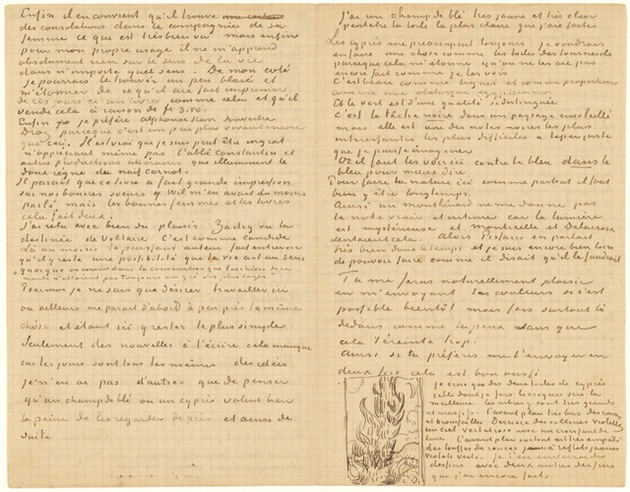 Enfin il en convient qu'il trouve
des consolations dans la compagnie de sa
femme ce que est très bien vu mais enfin
pour mon propre usage il ne m'apprend
absolument rien sur le sens de la vie
dans n'importe quel sens. De mon coté
je pourrais le trouver un peu usé et
m'étonner de ce qu'il ait fait imprimer
de ces jours ci un livre comme cela et qu'il
vende cela à raison de fr 3.50.
Enfin je préfère alphonse Karr Souvestre
Droz parceque c'est un peu plus vivant encore
que ceci. Il est vrai que je suis peut être ingrat
n'appréciant même pas l'abbé Constantin et
autres productions littéraires que illuminent le
doux règne du naïf Carnot.
Il parait que ce livre a fait grande impression
sur nos bonnes soeurs. Wil m'en avait du moins
parlé mais les bonnes femmes et les livres
cela fait deux.
J'ai relu avec bien du plaisir Zadig ou la
destinée de Voltaire. C'est comme Candide
Là au moins le puissant auteur fait entrevoir
qu'il y reste une possibilité que la vie ait un sens
quoique on convint dans la conversation que les choses de ce
monde n'allaient pas toujours au gré des plus sages
Pour moi je ne sais que désirer travailler ici
ou ailleurs me parait d'abord à peu près la même
chose et étant ici y rester le plus simple
Seulement des nouvelles à t'écrire cela manque
car les jours sont tous les mêmes des idées
je n'en ai pas d'autres que de penser
qu'un champ de blé ou un cyprès valent bien
la peine de les regarder de près et ainsi de
suite
J'ai un champ de blé très jaune et très clair
peut etre la toile la plus claire que j'aie faite
Les cyprès me préoccupent toujours je voudrais
en faire une chose comme les toiles des tournesols
parceque cela m'étonne qu'on ne les ait pas
encore fait comme je les vois.
C'est beau comme lignes et comme proportions
comme une obélisque egyptienne.
Et le vert est d'une qualité si distinguée
c'est la tache noire dans un paysage ensoleillé
mais elle est une des notes noires les plus
interessantes les plus difficiles à taper juste
que je puisse imaginer
Or il faut les voir ici contre le bleu dans le
bleu pour mieux dire
Pour faire la nature ici comme partout il faut
bien y être longtemps.
Ainsi un monthénard ne me donne pas
la note vraie et intime car la lumière
est mystérieuse et monticelli et Delacroix
sentaient cela. Alors Pissarro en parlait
très bien dans le temps et je suis encore bien loin
de pouvoir faire comme il disait qu'il le faudrait
Tu me feras naturellement plaisir
en m'envoyant les couleurs si c'est
possible bientôt mais fais surtout là
dedans comme tu peux sans que
cela t'éreinte trop.
Ainsi si tu préfères me l'envoyer en
deux fois cela est bon aussi
je crois que des deux toiles de cyprès
celle dont je fais le croquis sera la
meilleure les arbres y sont très grands
et massifs. l'avant plan très bas des ronces
et broussailles Derrière des collines violettes
un ciel vert et rose avec un croissant de
lune. L'avant plan surtout est très empâté
des touffes de ronces à reflets jaunes
violets verts. je t'en enverrai des
dessins avec deux autres dessins
que j'ai encore faits